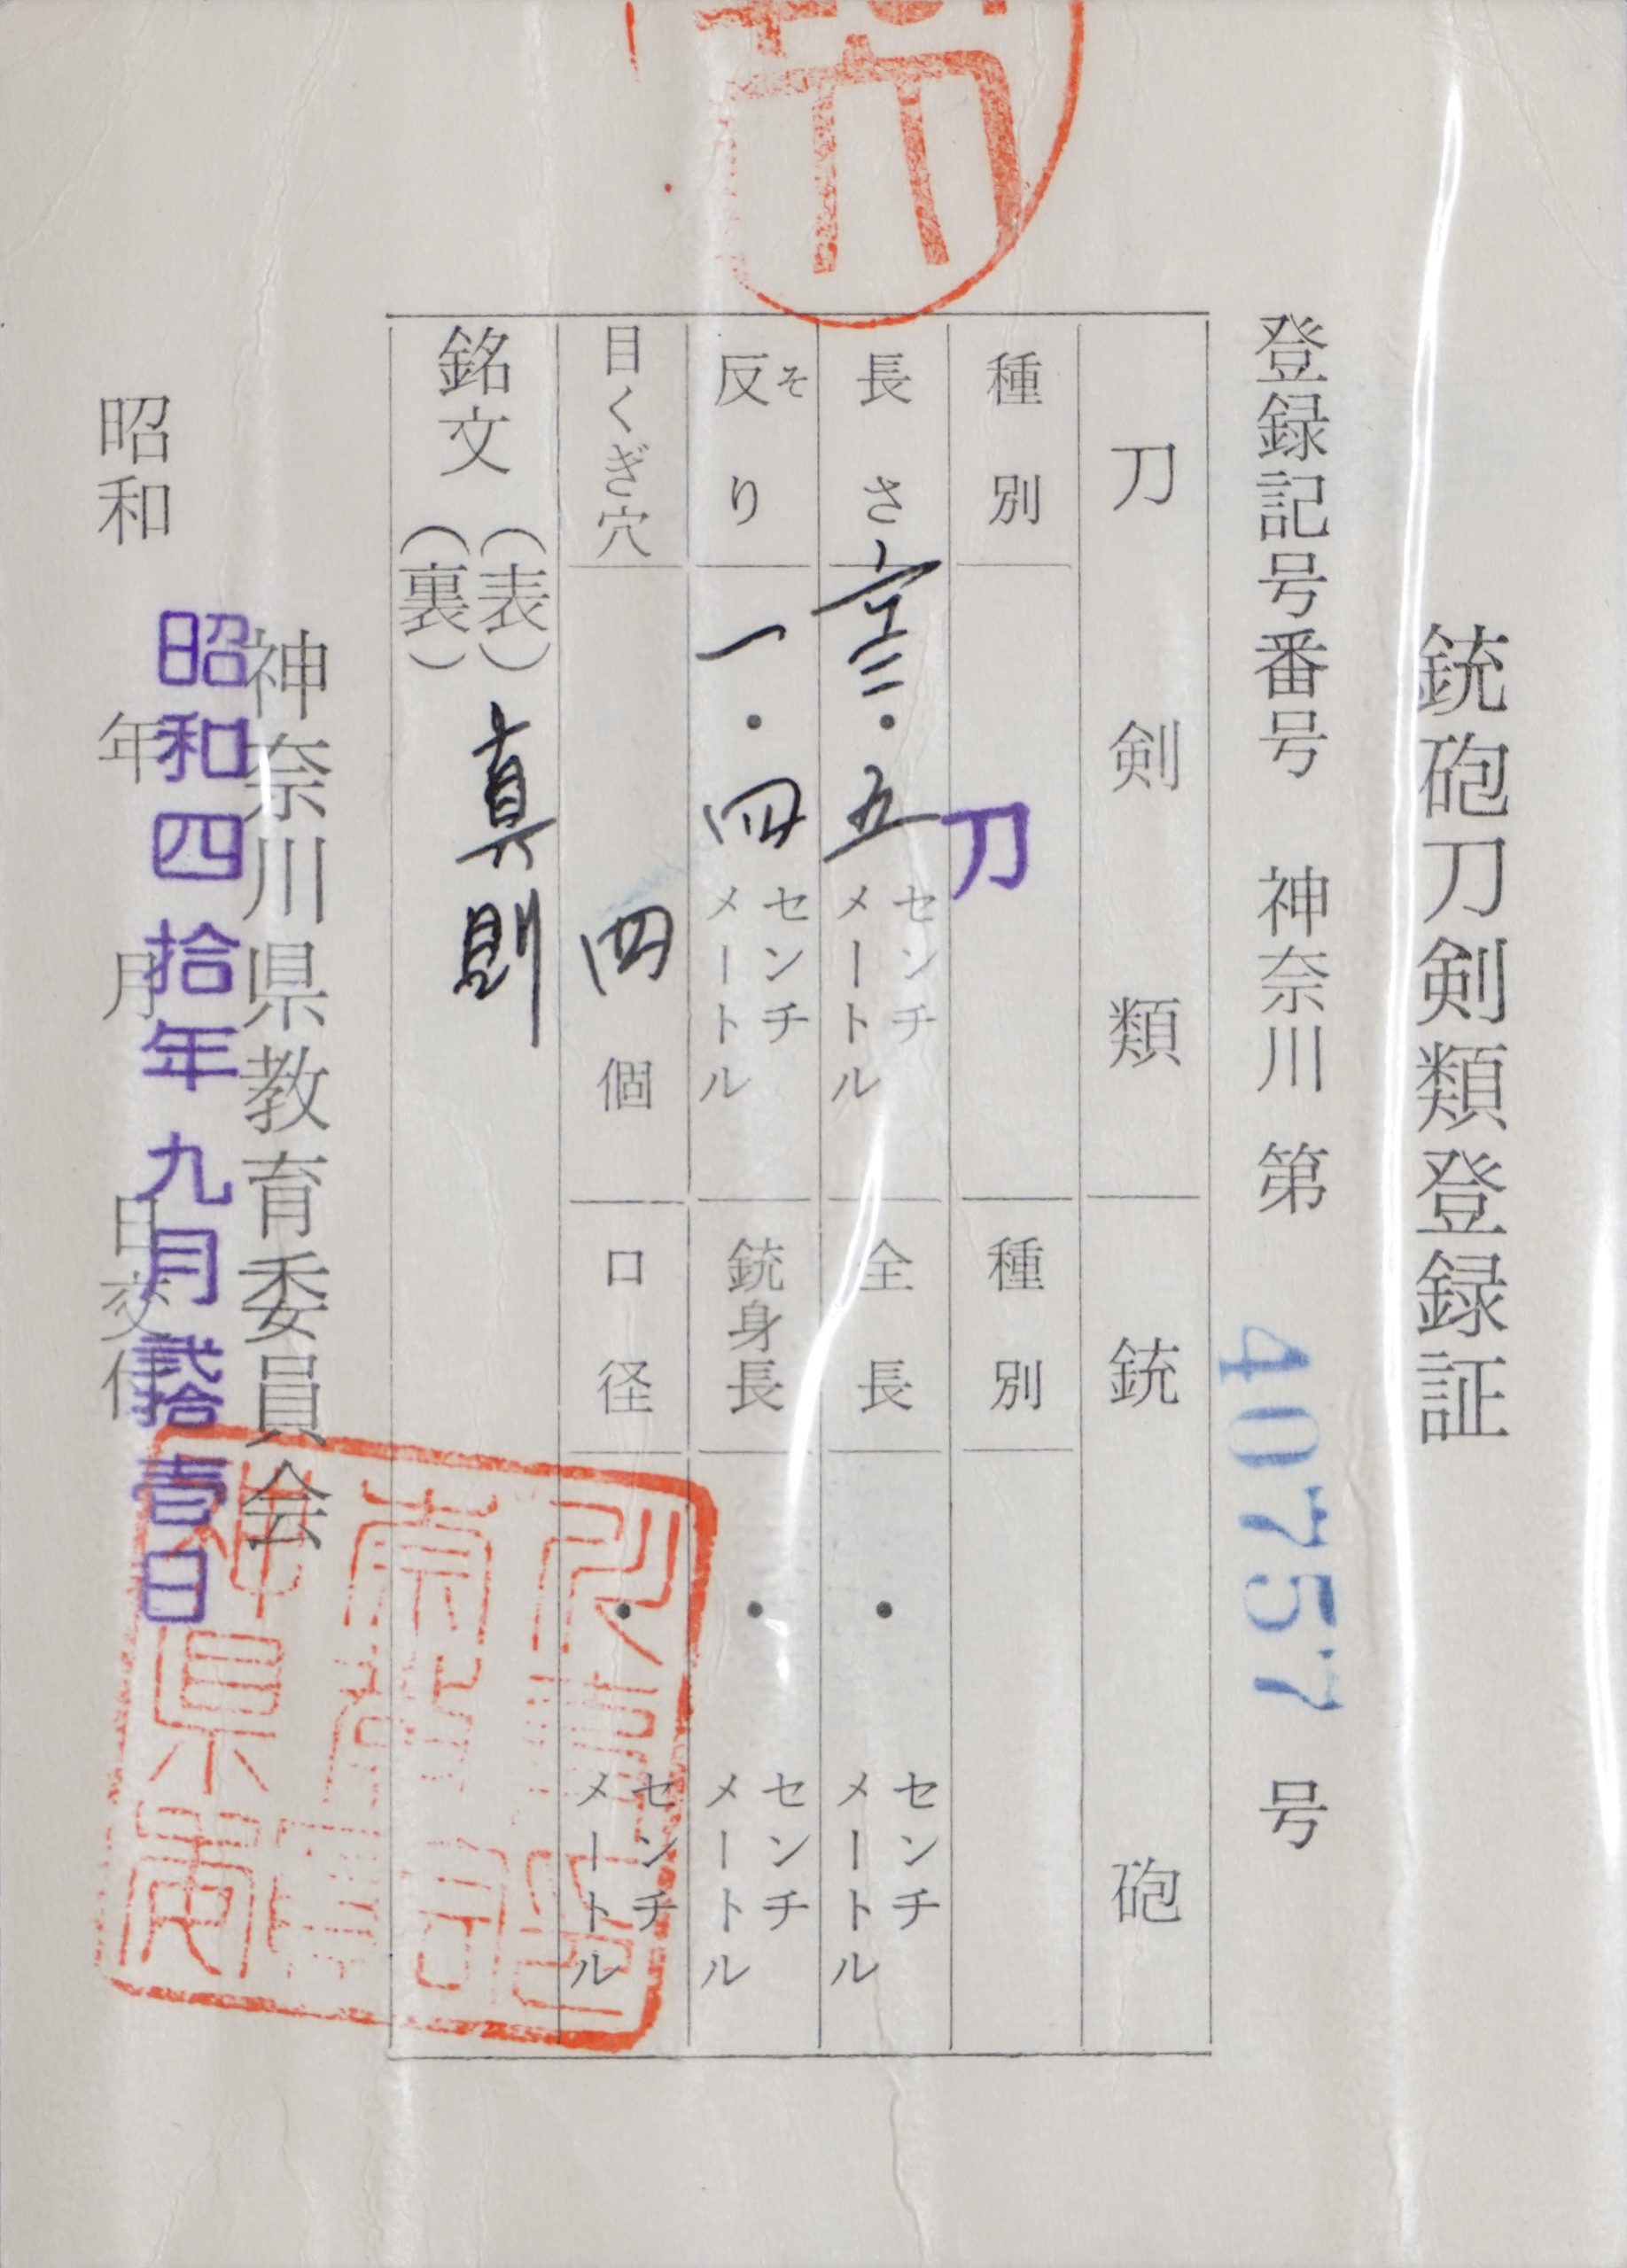 銃砲刀剣類登録証
登録記号番号 神奈川 第 40757 号
刀剣類
銃砲
種別 刀
種別
長さ ・五 センチメートル
全長 ・ センチメートル
反り そ 一・四 センチメートル
銃身長 ・ センチメートル
目くぎ穴 四 個
口径 ・ センチメートル
銘文 (表) 真則
(裏)
神奈川県教育委員会
昭和四拾年九月貳拾壹日
昭和 年 月 日交付